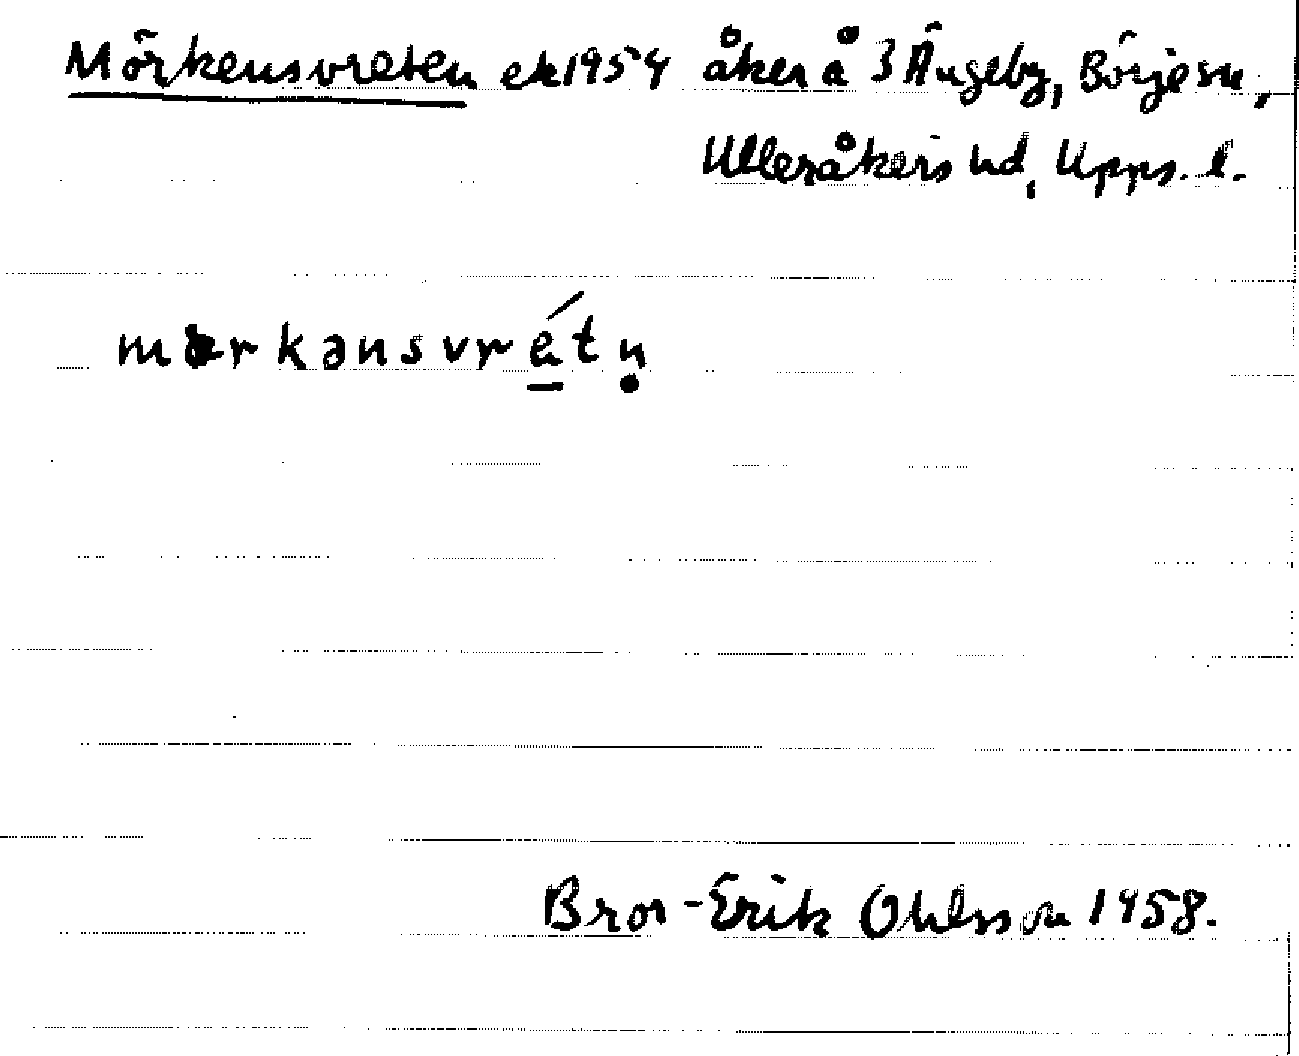 Mörkensvreten ek 1954 åker å 3 Ängeby, Börje sn,
Ulleråkers hd, Upps. l.
mərkənsvrétn̥
Bror-Erik Ohlsson 1958.